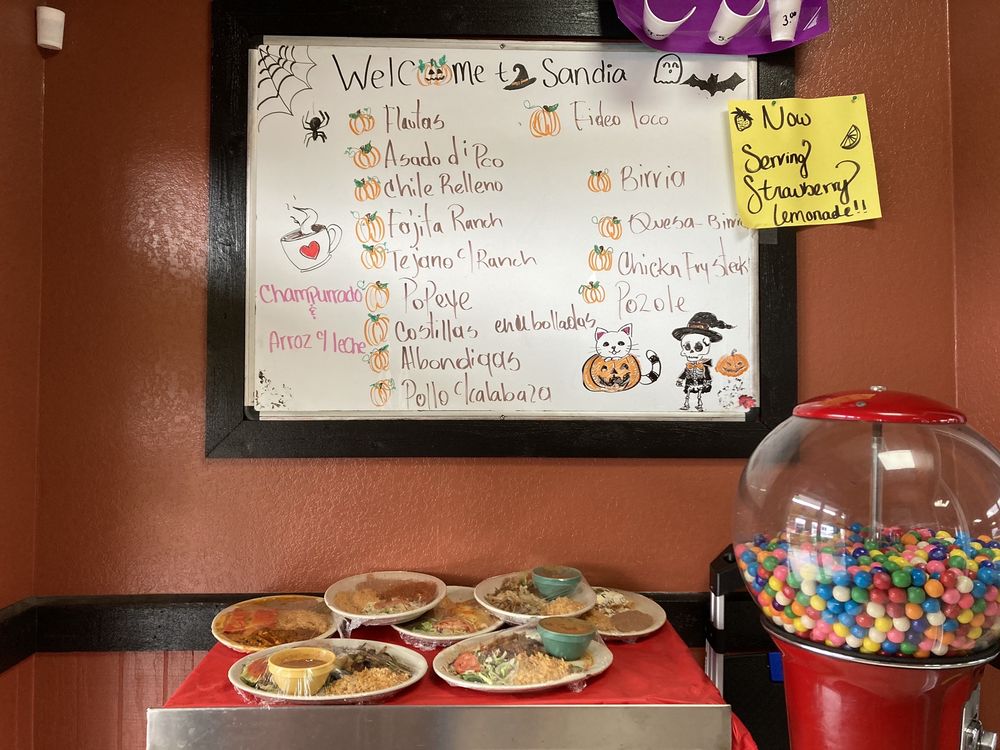 3.00
5.
Welcome to Sandia
Flautas
Asado di Pco
Chile Relleno
Fajita Ranch
Tejano c/Ranch
Popeye
Costillas enubolladas
Albondigas
Pollo c/calabaza
Fideo loco
Birria
Quesa-Birri
Chickn Fry steak
Pozole
Champurrado
&
Arroz c/leche
Now
Serving
Strawberry
Lemonade!!